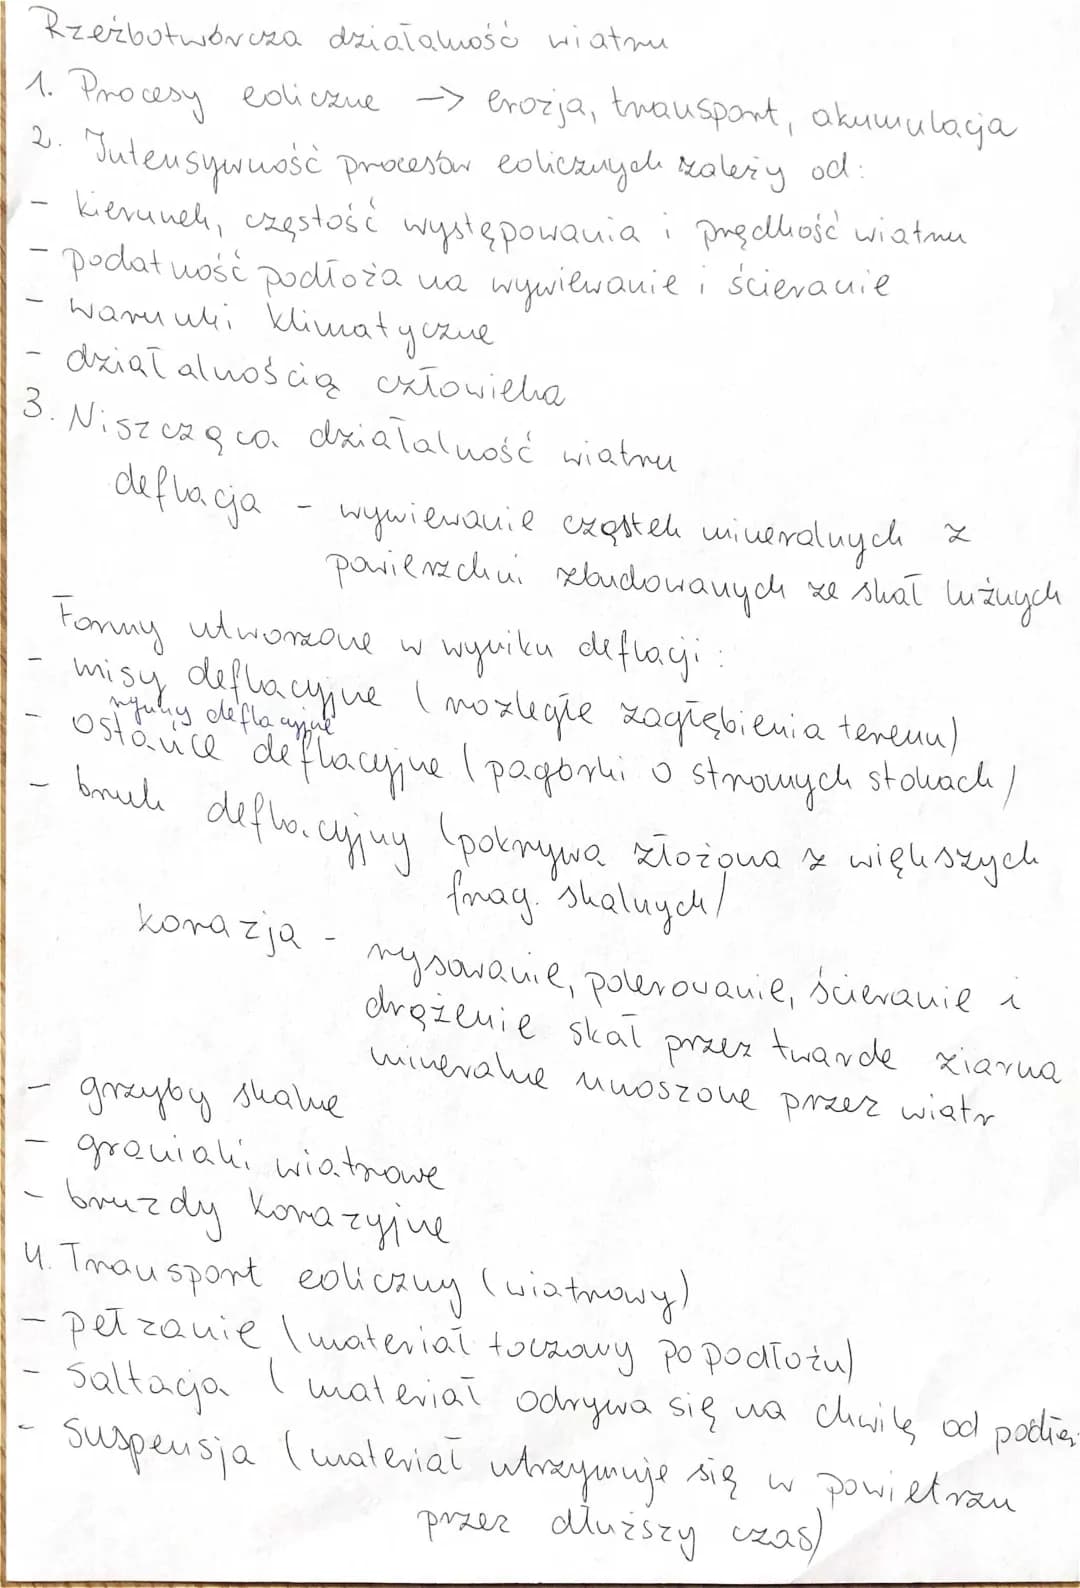 Rzeźbotwórcza działalność wiatru
1. Procesy eoliczne -> erozja, transport, akumulacja
2. Intensywność procesów eolicznych zależy od:
- kierunek, częstość występowania i prędkość wiatru
- podatność podłoża na wywiewanie i ścieranie
- warunki klimatyczne
- działalnością człowieka
3. Niszcząca działalność wiatru
deflacja - wywiewanie cząstek mineralnych z
powierzchni zbudowanych ze skał luźnych
Formy utworzone w wyniku deflacji:
- misy deflacyjne (rozległe zagłębienia terenu)
rynny deflacyjne
- ostańce deflacyjne (pagórki o stromych stokach)
- bruk deflacyjny (pokrywa złożona z większych
frag. skalnych)
korazja - rysowanie, polerowanie, ścieranie i
drążenie skał przez twarde ziarna
mineralne unoszone przez wiatr
- grzyby skalne
- graniaki wiatrowe
- bruzdy korazyjne
4. Transport eoliczny (wiatrowy)
- pełzanie (materiał toczony po podłożu)
- saltacja (materiał odrywa się na chwilę od
- suspensja (materiał utrzymuje się w powietrzu
przez dłuższy czas)